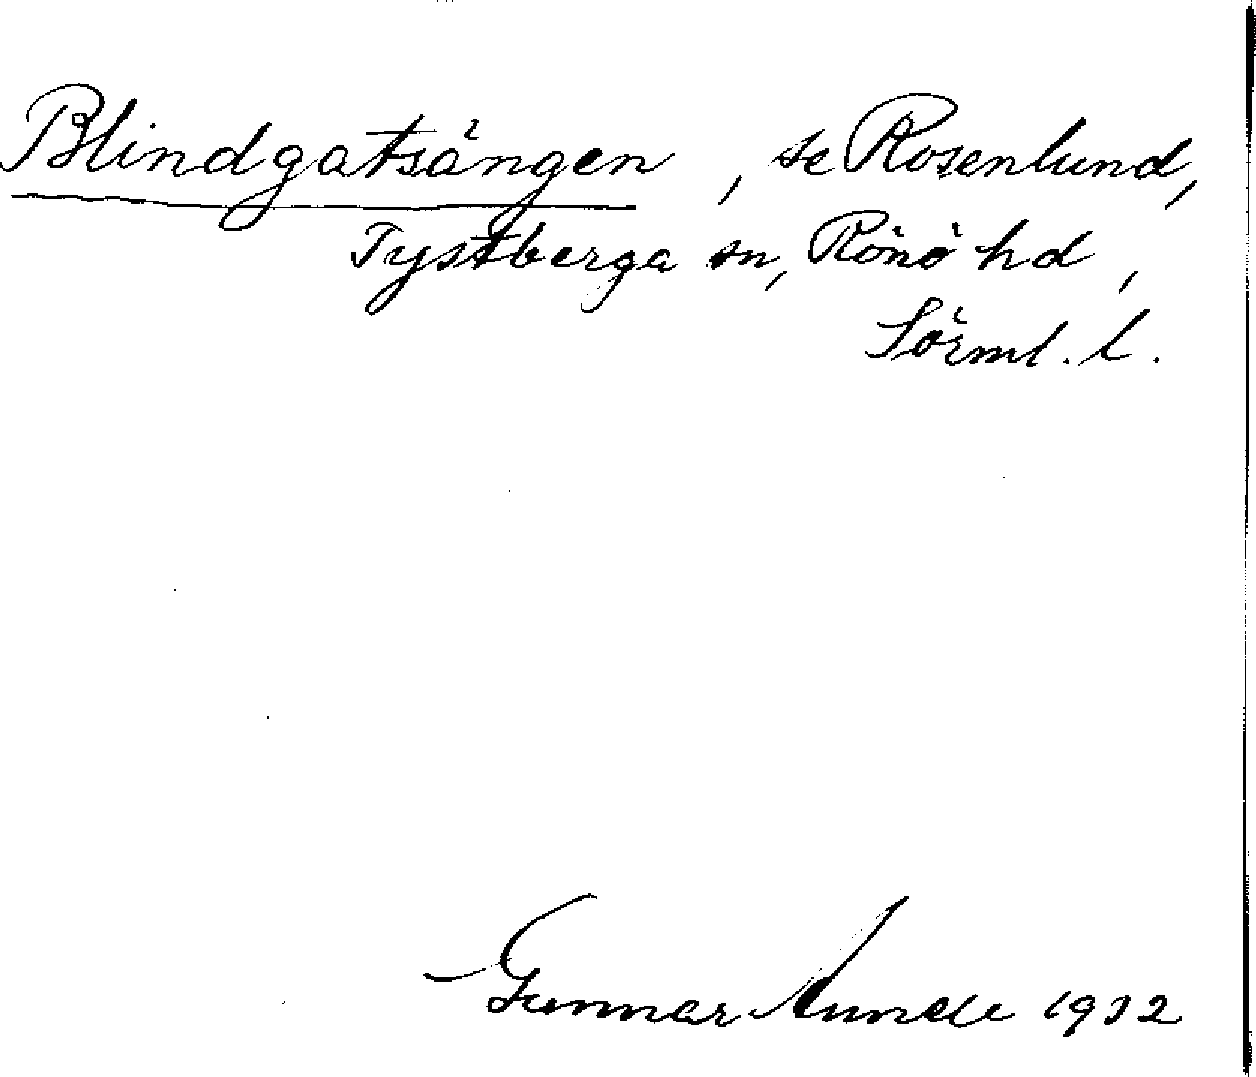 Blindgatsängen, se Rosenlund,
Tystberga sn, Rönö hd,
Sörml. l.
Gunnar Linde 1932